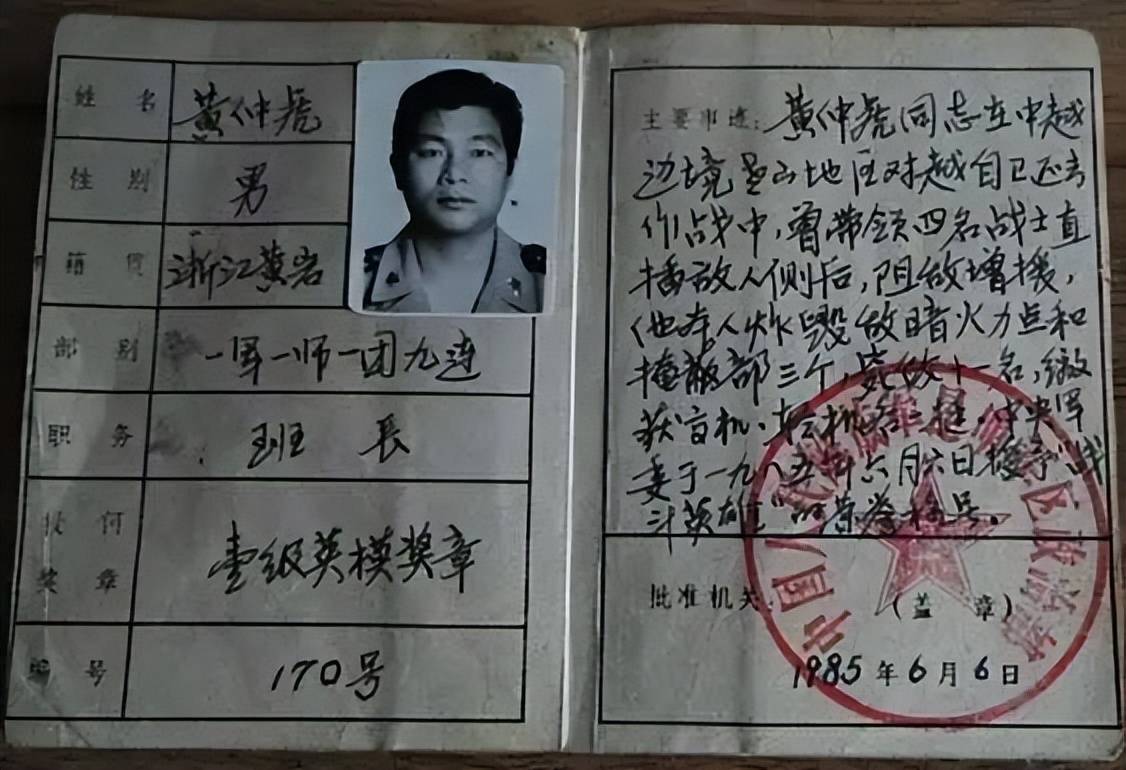 姓名 黄仲虎
性别 男
籍贯 浙江黄岩
部别 一军一师一团九连
职务 班长
授何
奖章 壹级英模奖章
编号 170号
主要事迹：黄仲虎同志在中越
边境老山地区对越自卫还击
作战中，曾带领四名战士直
插敌人侧后，阻敌增援，
他本人炸毁敌暗火力点和
掩蔽部三个，毙敌十一名，缴
获
中央军
委于一九八五年六月六日授予“战
斗英雄”的荣誉称号。
批准机关：
（盖 章）
1985年6月6日